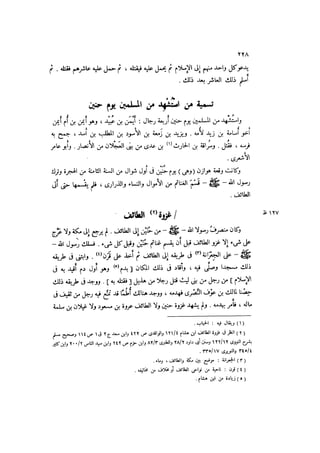 ٢٢٨
يدعو كل واحد منهم إلى الإسلام ثم يحمل عليه فيقتله ، ثم حمل عليه عاشرهم فقتله . ثم
أسلم ذلك العاشر بعد ذلك .
تسمية من استُشْهِد من المسلمين يوم حنين
واستُشْهد من المسلمين يوم حنين أربعة رجال : أَيْمَن بن عُبَيْد ، وهو أيمن بن أم أيمن
أخو أسامة بن زيد لأمه . ويزيد بن زمعة بن الأسود بن المطلب بن أسد ، جمح به
فرسه ، فقُتل . وسراقة بن الحارث (١) بن عدى من بنى العَجْلان من الأنصار . وأبو عامر
الأشعرى .
وكانت وقعة هوازن (وهى) يوم حنين فى أول شوال من السنة الثامنة من الهجرة وترك
رسول الله – ﷺ – قَسْمَ الغنائم من الأموال والنساء والذرارى ، فلم يقسمها حتى أتى
الطائف .
/ غزوة (٢) الطائف
١٢٧ ظ
وكان منصرفُ رسول الله – ﷺ – من حُنَيْن إلى الطائف . لم يرجع إلى مكة ولا عَرَّج
على شىء إلا غزو الطائف قبل أن يقسم غنائم حُنَيْن وقبل كل شىء . فسلك رسول الله –
ﷺ – على الجِعْرانة (٣) فى طريقه إلى الطائف ثم أخذ على قَرْن (٤) . وابتنى فى طريقه
ذلك مسجدا وصلَّى فيه ، وأقاد فى ذلك المكان [ بدم (٥) وهو أول دم أُقِيد به فى
الإسلام ] من رجل من بنى ليث قتل رجلا من هذيل [ فقتله به ] . ووجد فى طريقه ذلك
حِصْنا لمالك بن عوف النَّصْرى فهدمه ، ووجد هنالك أُطُما قد تمنَّع فيه رجل من ثقيف فى
ماله ، فأمر بهدمه . ولم يشهد غزوة حنين ولا الطائف عروة بن مسعود ولا غيلان بن سلمة
(١) ويقال فيه : الحباب .
(٢) انظر فى غزوة الطائف ابن هشام ١٢١/٤ والواقدى ص ٤٢٢ وابن سعد ج ٢ ق ١ ص ١١٤ وصحيح مسلم
بشرح النووى ١٢٢/١٢ وسنن أبى داود ٢٨/٢ والطبرى ٨٢/٣ وابن حزم ص ٢٤٢ وابن سيد الناس ٢٠٠/٢ وابن كثير
٣٤٥/٤ والنويرى ٣٣٥/١٧ .
(٣) الجعرانة : موضع بين مكة والطائف ، وماء .
(٤) قرن : ناحية من نواحى الطائف أو مخلاف من مخاليفه .
(٥) زيادة من ابن هشام .